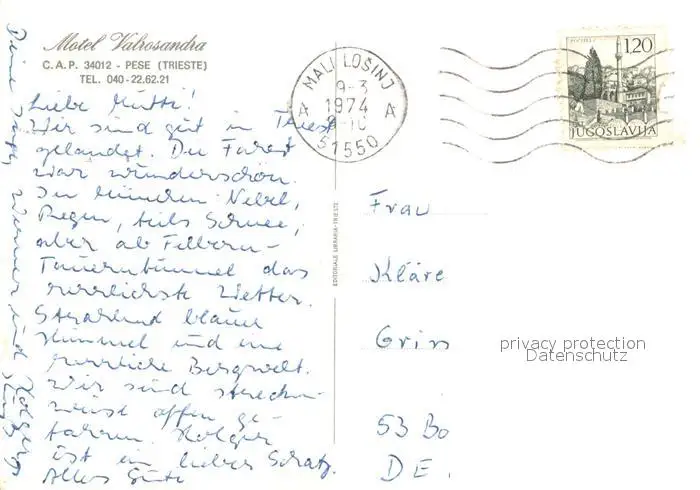 Motel Valrosandra
C.A.P. 34012 - PESE (TRIESTE)
TEL. 040-22.62.21
Liebe Mutti!
Wir sind gut in Triest
gelandet. Die Fahrt
war wunderschön.
In München Nebel,
Regen, teils Schnee,
aber ab Felbern-
Tauerntunnel das
herrlichste Wetter.
Strahlend blauer
Himmel und eine
herrliche Bergwelt.
Wir sind strecken-
weise offen ge-
fahren. Holger
ist ein lieber Schatz.
Alles Gute
Deine
und Holger
EDITORIALE LIBRARIA-TRIESTE
MALI LOŠINJ
9-3
1974
A A
51550
1,20
JUGOSLAVIJA
Frau
Kläre
Grin
53 Bo
DE.
privacy protection
Datenschutz